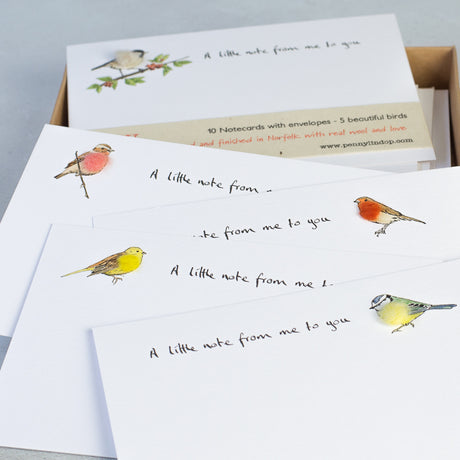 A little note from me to you
10 Notecards with envelopes - 5 beautiful birds
and finished in Norfolk, with real wool and love
www.pennylindop.com
A little note from
note from me to you
A little note from me
A little note from me to you